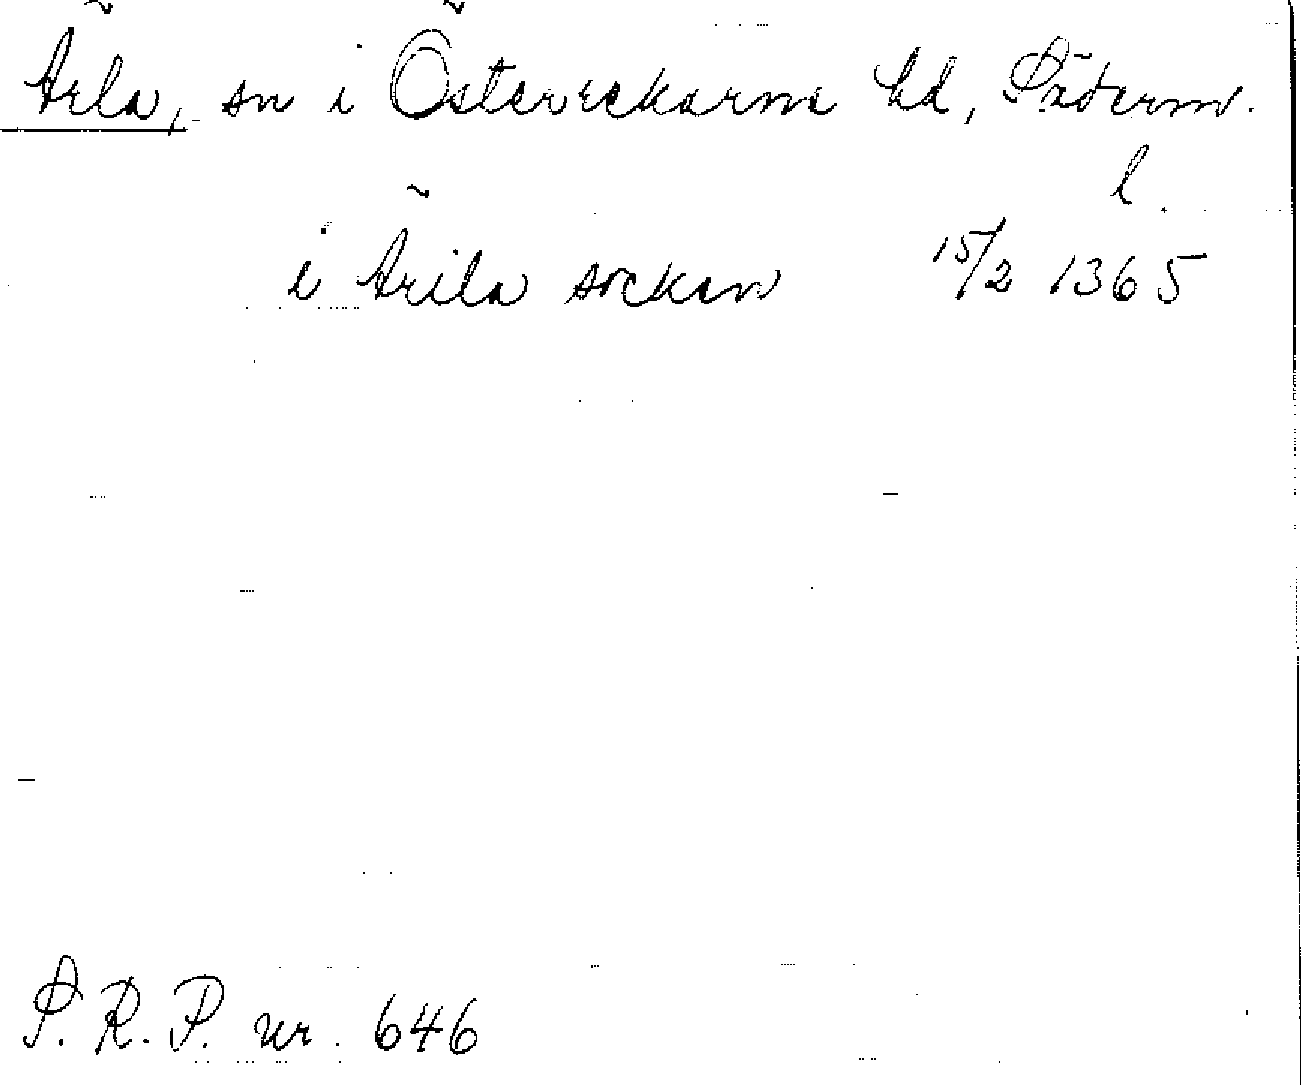 Ärla, sn i Österrekarne hd, Söderm.
l.
i Ärila sockan 15/2 1365
S. R. P. nr. 646